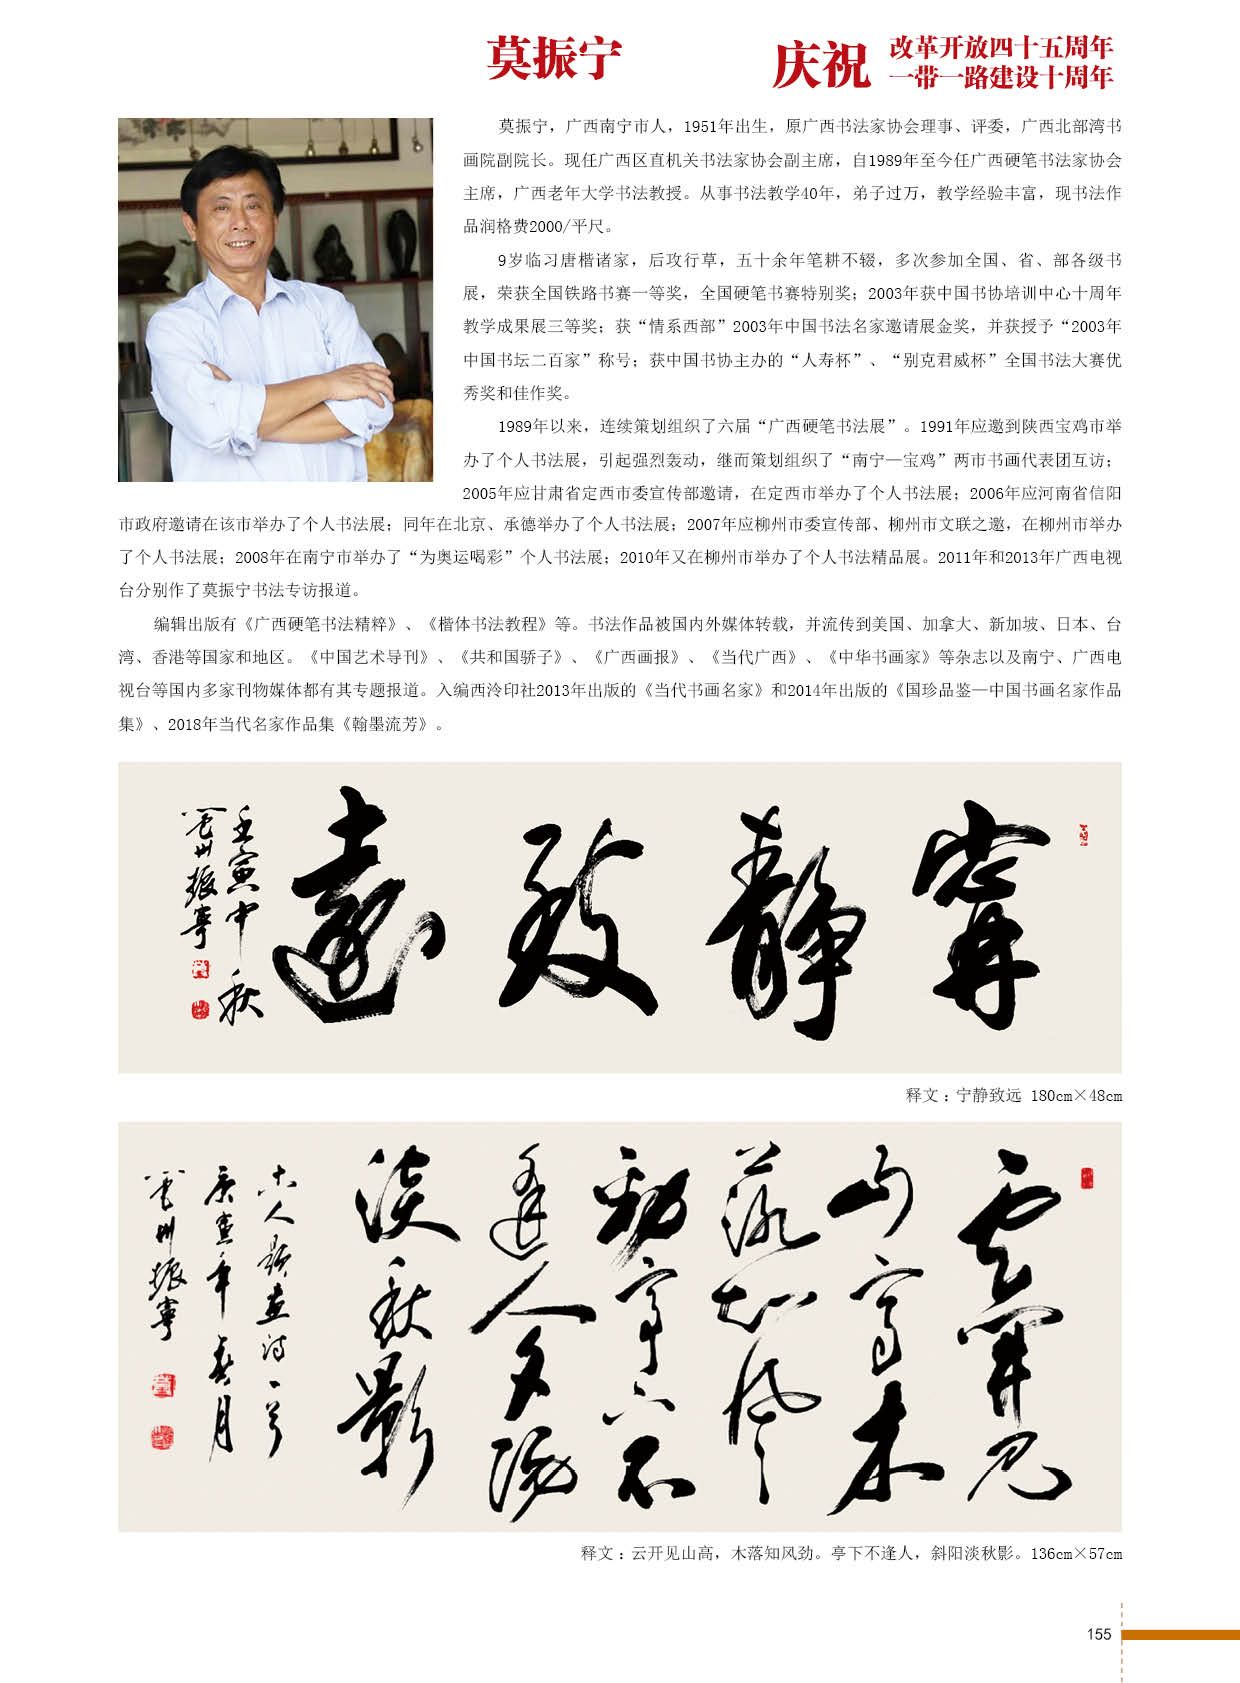 莫振宁
庆祝
改革开放四十五周年
一带一路建设十周年
莫振宁，广西南宁市人，1951年出生，原广西书法家协会理事、评委，广西北部湾书
画院副院长。现任广西区直机关书法家协会副主席，自1989年至今任广西硬笔书法家协会
主席，广西老年大学书法教授。从事书法教学40年，弟子过万，教学经验丰富，现书法作
品润格费2000/平尺。
9岁临习唐楷诸家，后攻行草，五十余年笔耕不辍，多次参加全国、省、部各级书
展，荣获全国铁路书赛一等奖，全国硬笔书赛特别奖；2003年获中国书协培训中心十周年
教学成果展三等奖；获“情系西部”2003年中国书法名家邀请展金奖，并获授予“2003年
中国书坛二百家”称号；获中国书协主办的“人寿杯”、“别克君威杯”全国书法大赛优
秀奖和佳作奖。
1989年以来，连续策划组织了六届“广西硬笔书法展”。1991年应邀到陕西宝鸡市举
办了个人书法展，引起强烈轰动，继而策划组织了“南宁—宝鸡”两市书画代表团互访；
2005年应甘肃省定西市委宣传部邀请，在定西市举办了个人书法展；2006年应河南省信阳
市政府邀请在该市举办了个人书法展；同年在北京、承德举办了个人书法展；2007年应柳州市委宣传部、柳州市文联之邀，在柳州市举办
了个人书法展；2008年在南宁市举办了“为奥运喝彩”个人书法展；2010年又在柳州市举办了个人书法精品展。2011年和2013年广西电视
台分别作了莫振宁书法专访报道。
编辑出版有《广西硬笔书法精粹》、《楷体书法教程》等。书法作品被国内外媒体转载，并流传到美国、加拿大、新加坡、日本、台
湾、香港等国家和地区。《中国艺术导刊》、《共和国骄子》、《广西画报》、《当代广西》、《中华书画家》等杂志以及南宁、广西电
视台等国内多家刊物媒体都有其专题报道。入编西泠印社2013年出版的《当代书画名家》和2014年出版的《国珍品鉴—中国书画名家作品
集》、2018年当代名家作品集《翰墨流芳》。
寧靜致遠
壬寅中秋
振寧
释文：宁静致远 180cm×48cm
雲開見
山高木
落知風
勁亭下不
逢人夕陽
淡秋影
古人題畫詩一首
庚寅年春月
振寧
释文：云开见山高，木落知风劲。亭下不逢人，斜阳淡秋影。136cm×57cm
155